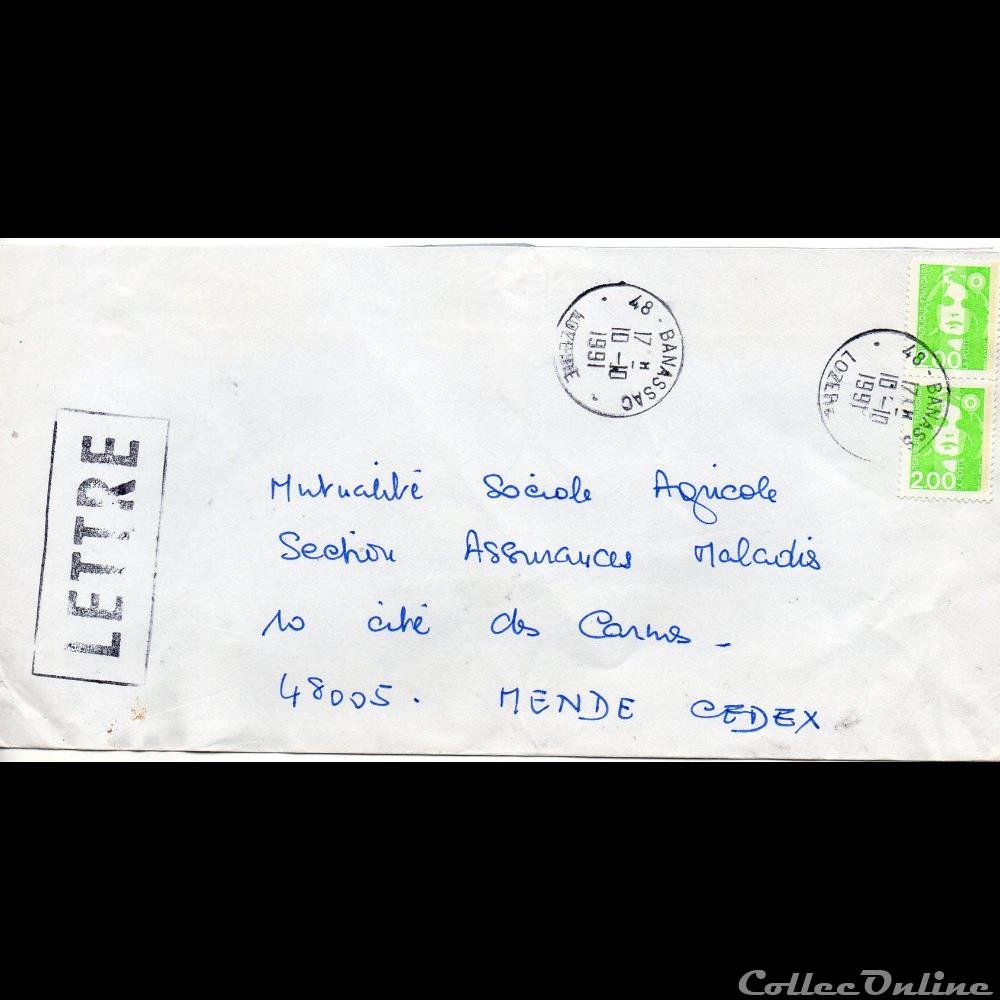 48 - BANASSAC
17 H
10 - 10
1991
LOZERE
RÉPUBLIQUE FRANÇAISE
2.00
LA POSTE
48 - BANASS
17 H
10 - 10
1991
LOZERE
2.00
LA POSTE
LETTRE
Mutualité Sociale Agricole
Section Assurances Maladis
10 cité des Carmes -
48005. MENDE CEDEX
CollecOnline